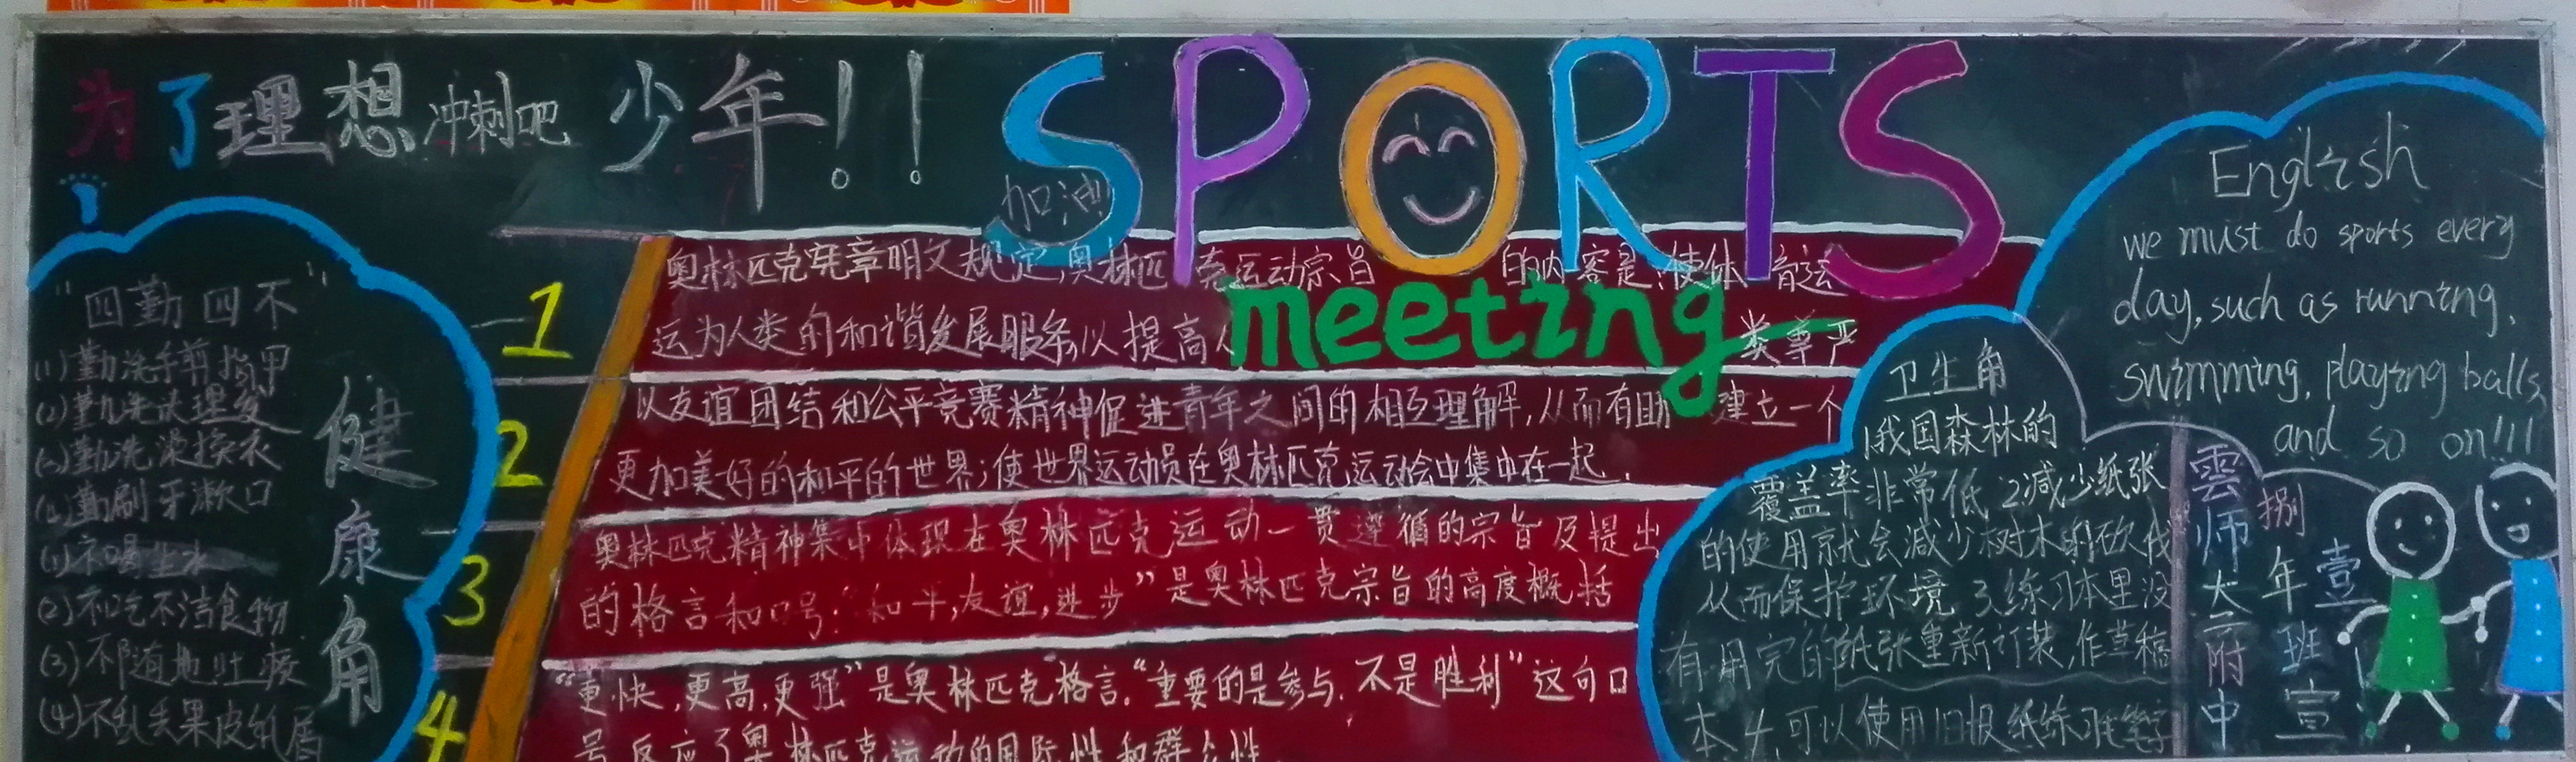 为了理想冲刺吧少年!!
SPORTS
meeting
加油
"四勤四不"
(1)勤洗手剪指甲
(2)勤洗头理发
(3)勤洗澡换衣
(4)勤刷牙漱口
(1)不喝生水
(2)不吃不洁食物
(3)不随地吐痰
(4)不乱丢果皮纸屑
健康角
1
奥林匹克宪章明文规定,奥林匹克运动宗旨的内容是:使体育运
运为人类的和谐发展服务,以提高人类尊严
2
以友谊团结和公平竞赛精神促进青年之间的相互理解,从而有助建立一个
更加美好的和平的世界;使世界运动员在奥林匹克运动会中集中在一起.
3
奥林匹克精神集中体现在奥林匹克运动一贯遵循的宗旨及提出
的格言和口号:"和平,友谊,进步"是奥林匹克宗旨的高度概括
4
"更快,更高,更强"是奥林匹克格言."重要的是参与,不是胜利"这句口
号反应了奥林匹克运动的国际性和群众性
English
we must do sports every
day, such as running,
swimming, playing balls,
and so on!!!
卫生角
1我国森林的
覆盖率非常低 2减少纸张
的使用就会减少树木的砍伐
从而保护环境 3.练习本里没
有用完的纸张重新订装,作草稿
本 4.可以使用旧报纸练习毛笔字
雲师大附中
捌年壹班宣